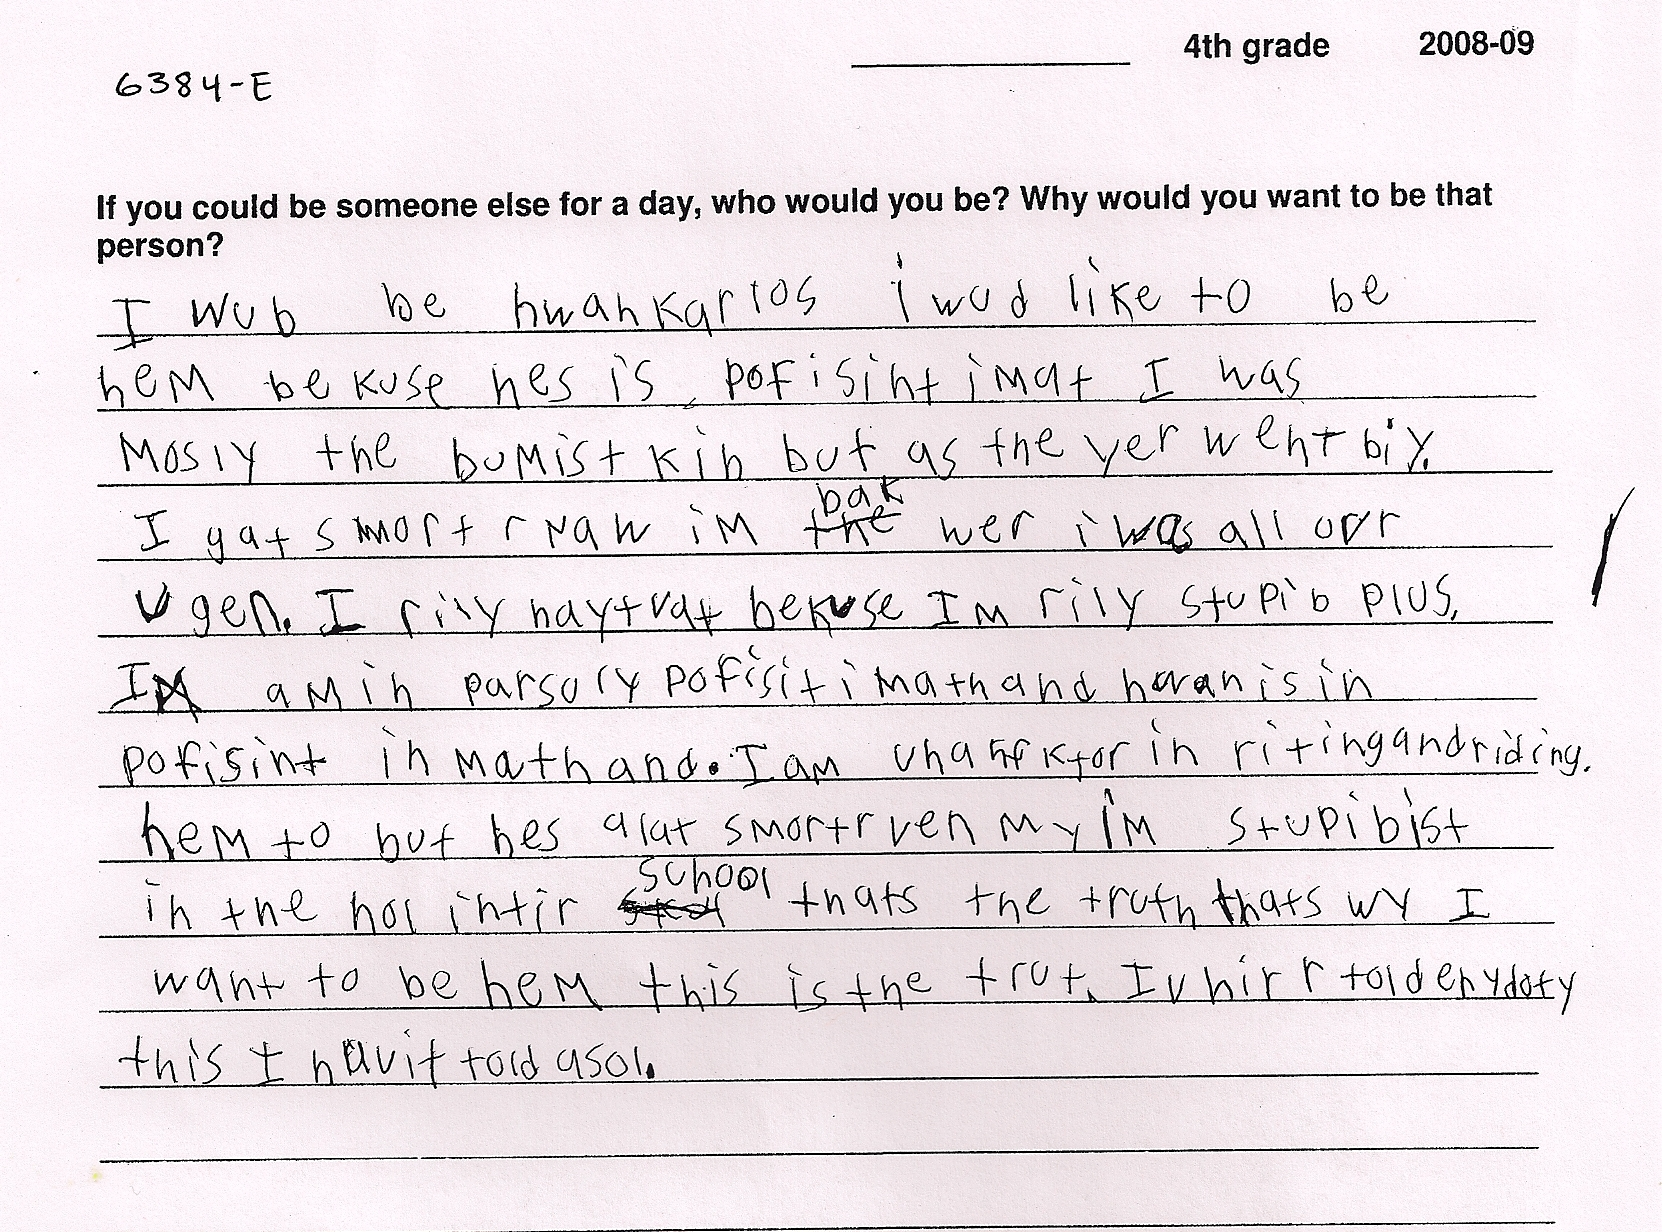 4th grade 2008-09
6384-E
If you could be someone else for a day, who would you be? Why would you want to be that
person?
I wub be hwahkarlos i wud like to be
hem be kuse hes is pofisiht imat I was
mosly the bumist kih but as the yer weht biy.
I gat smort r naw im bak wer i was all ovr
ugen. I rily haytvat bekuse Im rily stupib plus,
I am ih parsury pofisiti math and hwan is in
pofisint ih math and. I am in riting and riding.
hem to but hes alat smortr ven my im stupibist
ih the hol intir school thats the truth thats wy I
want to be hem this is the trut. Iv hir r told enydoty
this I havit told asol.